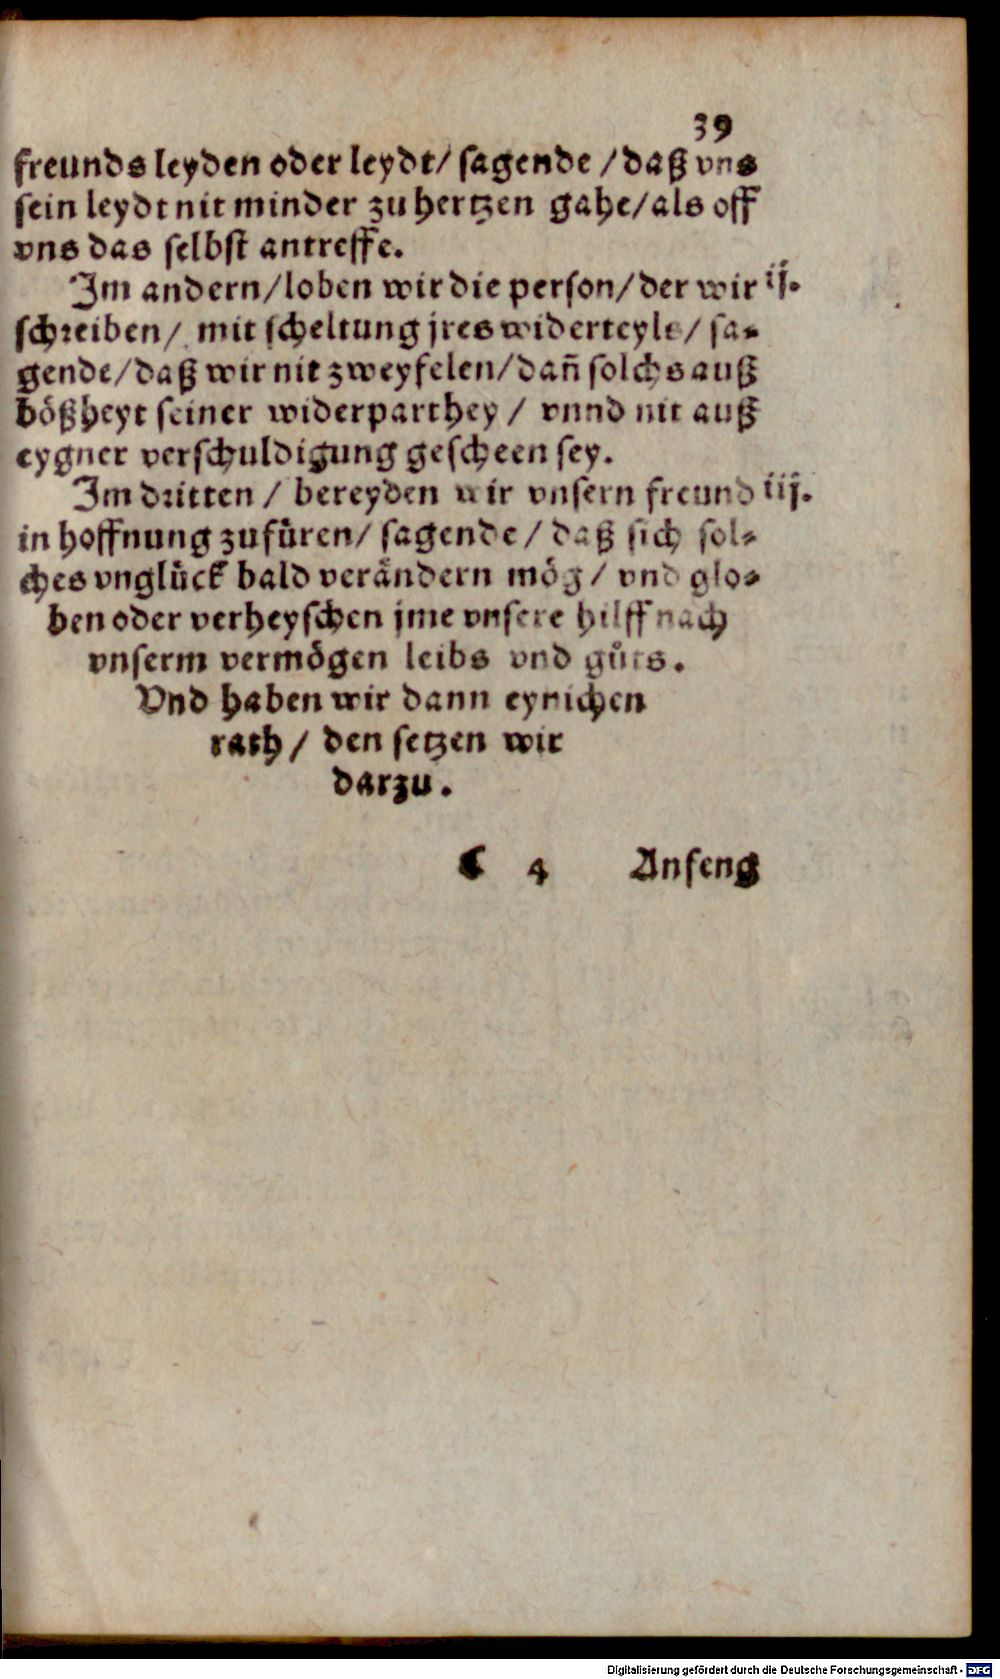 39
freunds leyden oder leydt/ sagende /daß vns
sein leydt nit minder zu hertzen gahe/als off
vns das selbst antreffe.
Im andern/loben wir die person/der wir ij.
schreiben/ mit scheltung jres widerteyls/ sa-
gende/daß wir nit zweyfelen/dañ solchs auß
bößheyt seiner widerparthey / vnnd nit auß
eygner verschuldigung gescheen sey.
Im dritten / bereyden wir vnsern freund iij.
in hoffnung zufüren/ sagende / daß sich sol-
ches vnglück bald verändern mög / vnd glo-
ben oder verheyschen jme vnsere hilff nach
vnserm vermögen leibs vnd gůts.
Vnd haben wir dann eynichen
rath / den setzen wir
darzu.
4 Anfeng
Digitalisierung gefördert durch die Deutsche Forschungsgemeinschaft - DFG